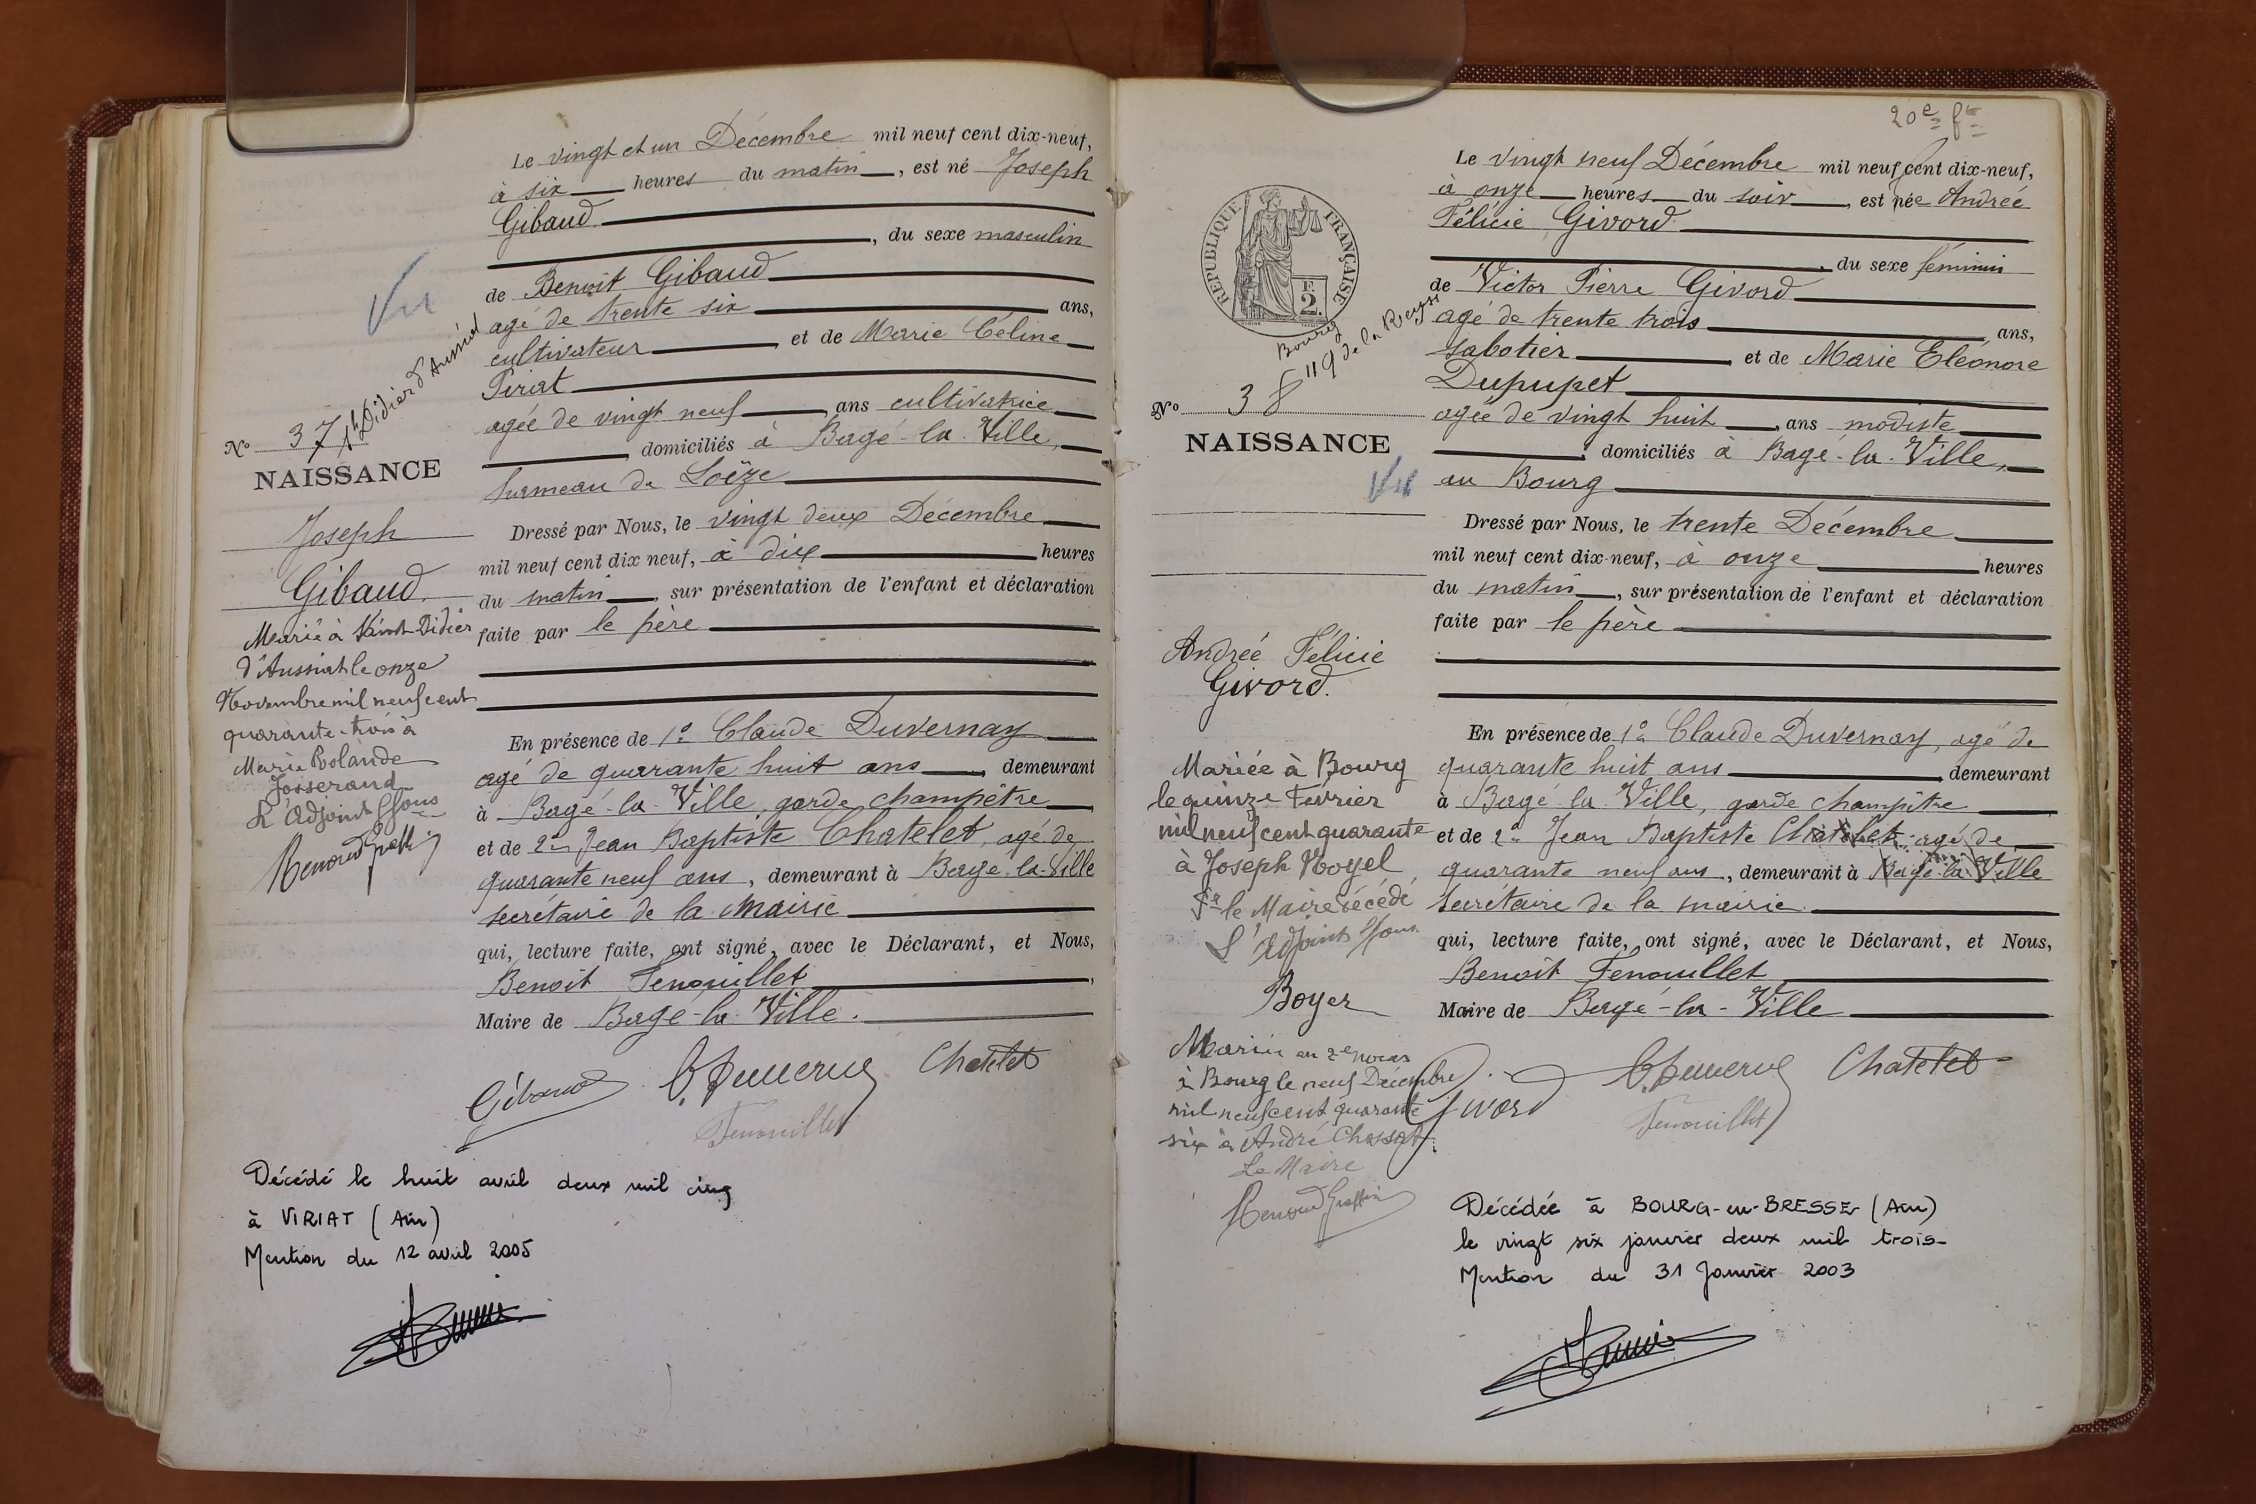 Le vingt et un Décembre mil neuf cent dix-neuf,
à six heures du matin, est né Joseph
Gibaud
, du sexe masculin
de Benoit Gibaud
agé de trente six ans,
cultivateur et de Marie Céline
Piriat
agée de vingt neuf, ans cultivatrice
, domiciliés à Bagé-la-Ville,
hameau de Loëze
Dressé par Nous, le vingt deux Décembre
mil neuf cent dix neuf, à dix heures
du matin, sur présentation de l'enfant et déclaration
faite par le père
En présence de 1° Claude Duvernay
agé de quarante huit ans, demeurant
à Bagé-la-Ville, garde champêtre
et de 2° Jean Baptiste Chatelet, agé de
quarante neuf ans, demeurant à Bagé-la-Ville
secrétaire de la mairie
qui, lecture faite, ont signé, avec le Déclarant, et Nous,
Benoit Fenouillet,
Maire de Bagé-la-Ville.
Gibaud Chatelet
Fenouillet
Vu
St Didier d'Aussiat
N° 37
NAISSANCE
Joseph
Gibaud.
Marié à Saint-Didier
d'Aussiat le onze
Novembre mil neuf cent
quarante-trois à
Marie Rolande
Josserand
L'Adjoint
Décédé le huit avril deux mil cinq
à VIRIAT (Ain)
Mention du 12 avril 2005
20e
Le vingt neuf Décembre mil neuf cent dix-neuf,
à onze heures du soir, est née Andrée
Félicie Givord
, du sexe féminin
de Victor Pierre Givord
agé de trente trois ans,
sabotier et de Marie Eléonore
Dupupet
agée de vingt huit, ans modiste
, domiciliés à Bagé-la-Ville,
au Bourg
Dressé par Nous, le trente Décembre
mil neuf cent dix-neuf, à onze heures
du matin, sur présentation de l'enfant et déclaration
faite par le père
En présence de 1° Claude Duvernay, agé de
quarante huit ans demeurant
à Bagé la Ville, garde champêtre
et de 2° Jean Baptiste Chatelet agé de
quarante neuf ans, demeurant à Bagé-la-Ville
secrétaire de la mairie
qui, lecture faite, ont signé, avec le Déclarant, et Nous,
Benoit Fenouillet
Maire de Bagé-la-Ville
Givord Chatelet
Fenouillet
RÉPUBLIQUE FRANÇAISE
F.
2.
Bourg
119 de la Reyss
N° 38
NAISSANCE
Vu
Andrée Félicie
Givord.
Mariée à Bourg
le quinze Février
mil neuf cent quarante
à Joseph Noyel
Pr le Maire décédé
L'adjoint
Boyer
Mariée en 2e noces
à Bourg le neuf Décembre
mil neuf cent quarante
six à André Chossat.
Le Maire
Décédée à BOURG-en-BRESSE (Ain)
le vingt six janvier deux mil trois-
Mention du 31 Janvier 2003